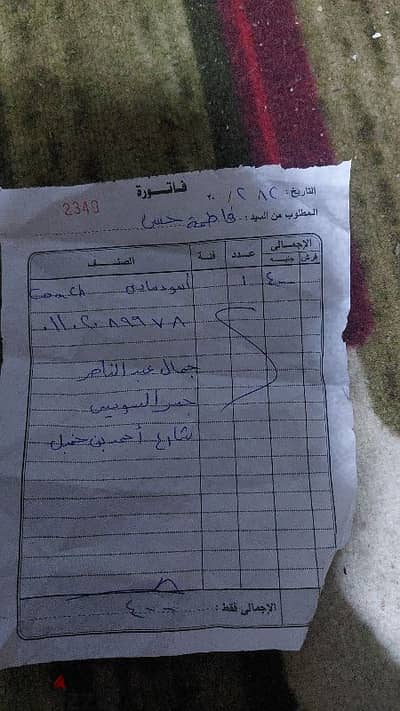 فاتورة
2349
التاريخ: ٢٨ / ٢ / ٢٠
المطلوب من السيد: فاطمة حسن
الإجمالى عدد فئة الصنف
قرش جنيه
٤٠٠ ١ أسود مادى Coach
٠١١٠٢٠٨٩٩٧٨
جمال عبد الناصر
جسر السويس
شارع أحمد بن حنبل
الإجمالى فقط: ٤٠٠